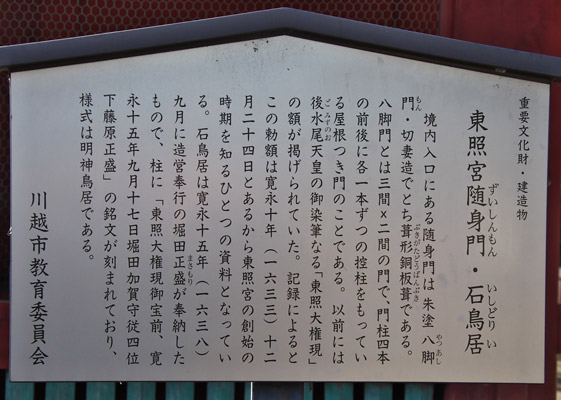 重要文化財・建造物
東照宮随身門・石鳥居
ずいしんもん いしどりい
境内入口にある随身門は朱塗八脚
やつあし
門・切妻造でとち葺形銅板葺である。
もん ぶきがたどうばんぶき
八脚門とは三間×二間の門で、門柱四本
の前後に各一本ずつの控柱をもってい
る屋根つき門のことである。以前には
後水尾天皇の御染筆なる「東照大権現」
ごみずのお
の額が掲げられていた。記録によると
この勅額は寛永十年（一六三三）十二
月二十四日とあるから東照宮の創始の
時期を知るひとつの資料となってい
る。石鳥居は寛永十五年（一六三八）
九月に造営奉行の堀田正盛が奉納した
まさもり
もので、柱に「東照大権現御宝前、寛
永十五年九月十七日堀田加賀守従四位
下藤原正盛」の銘文が刻まれており、
様式は明神鳥居である。
川越市教育委員会